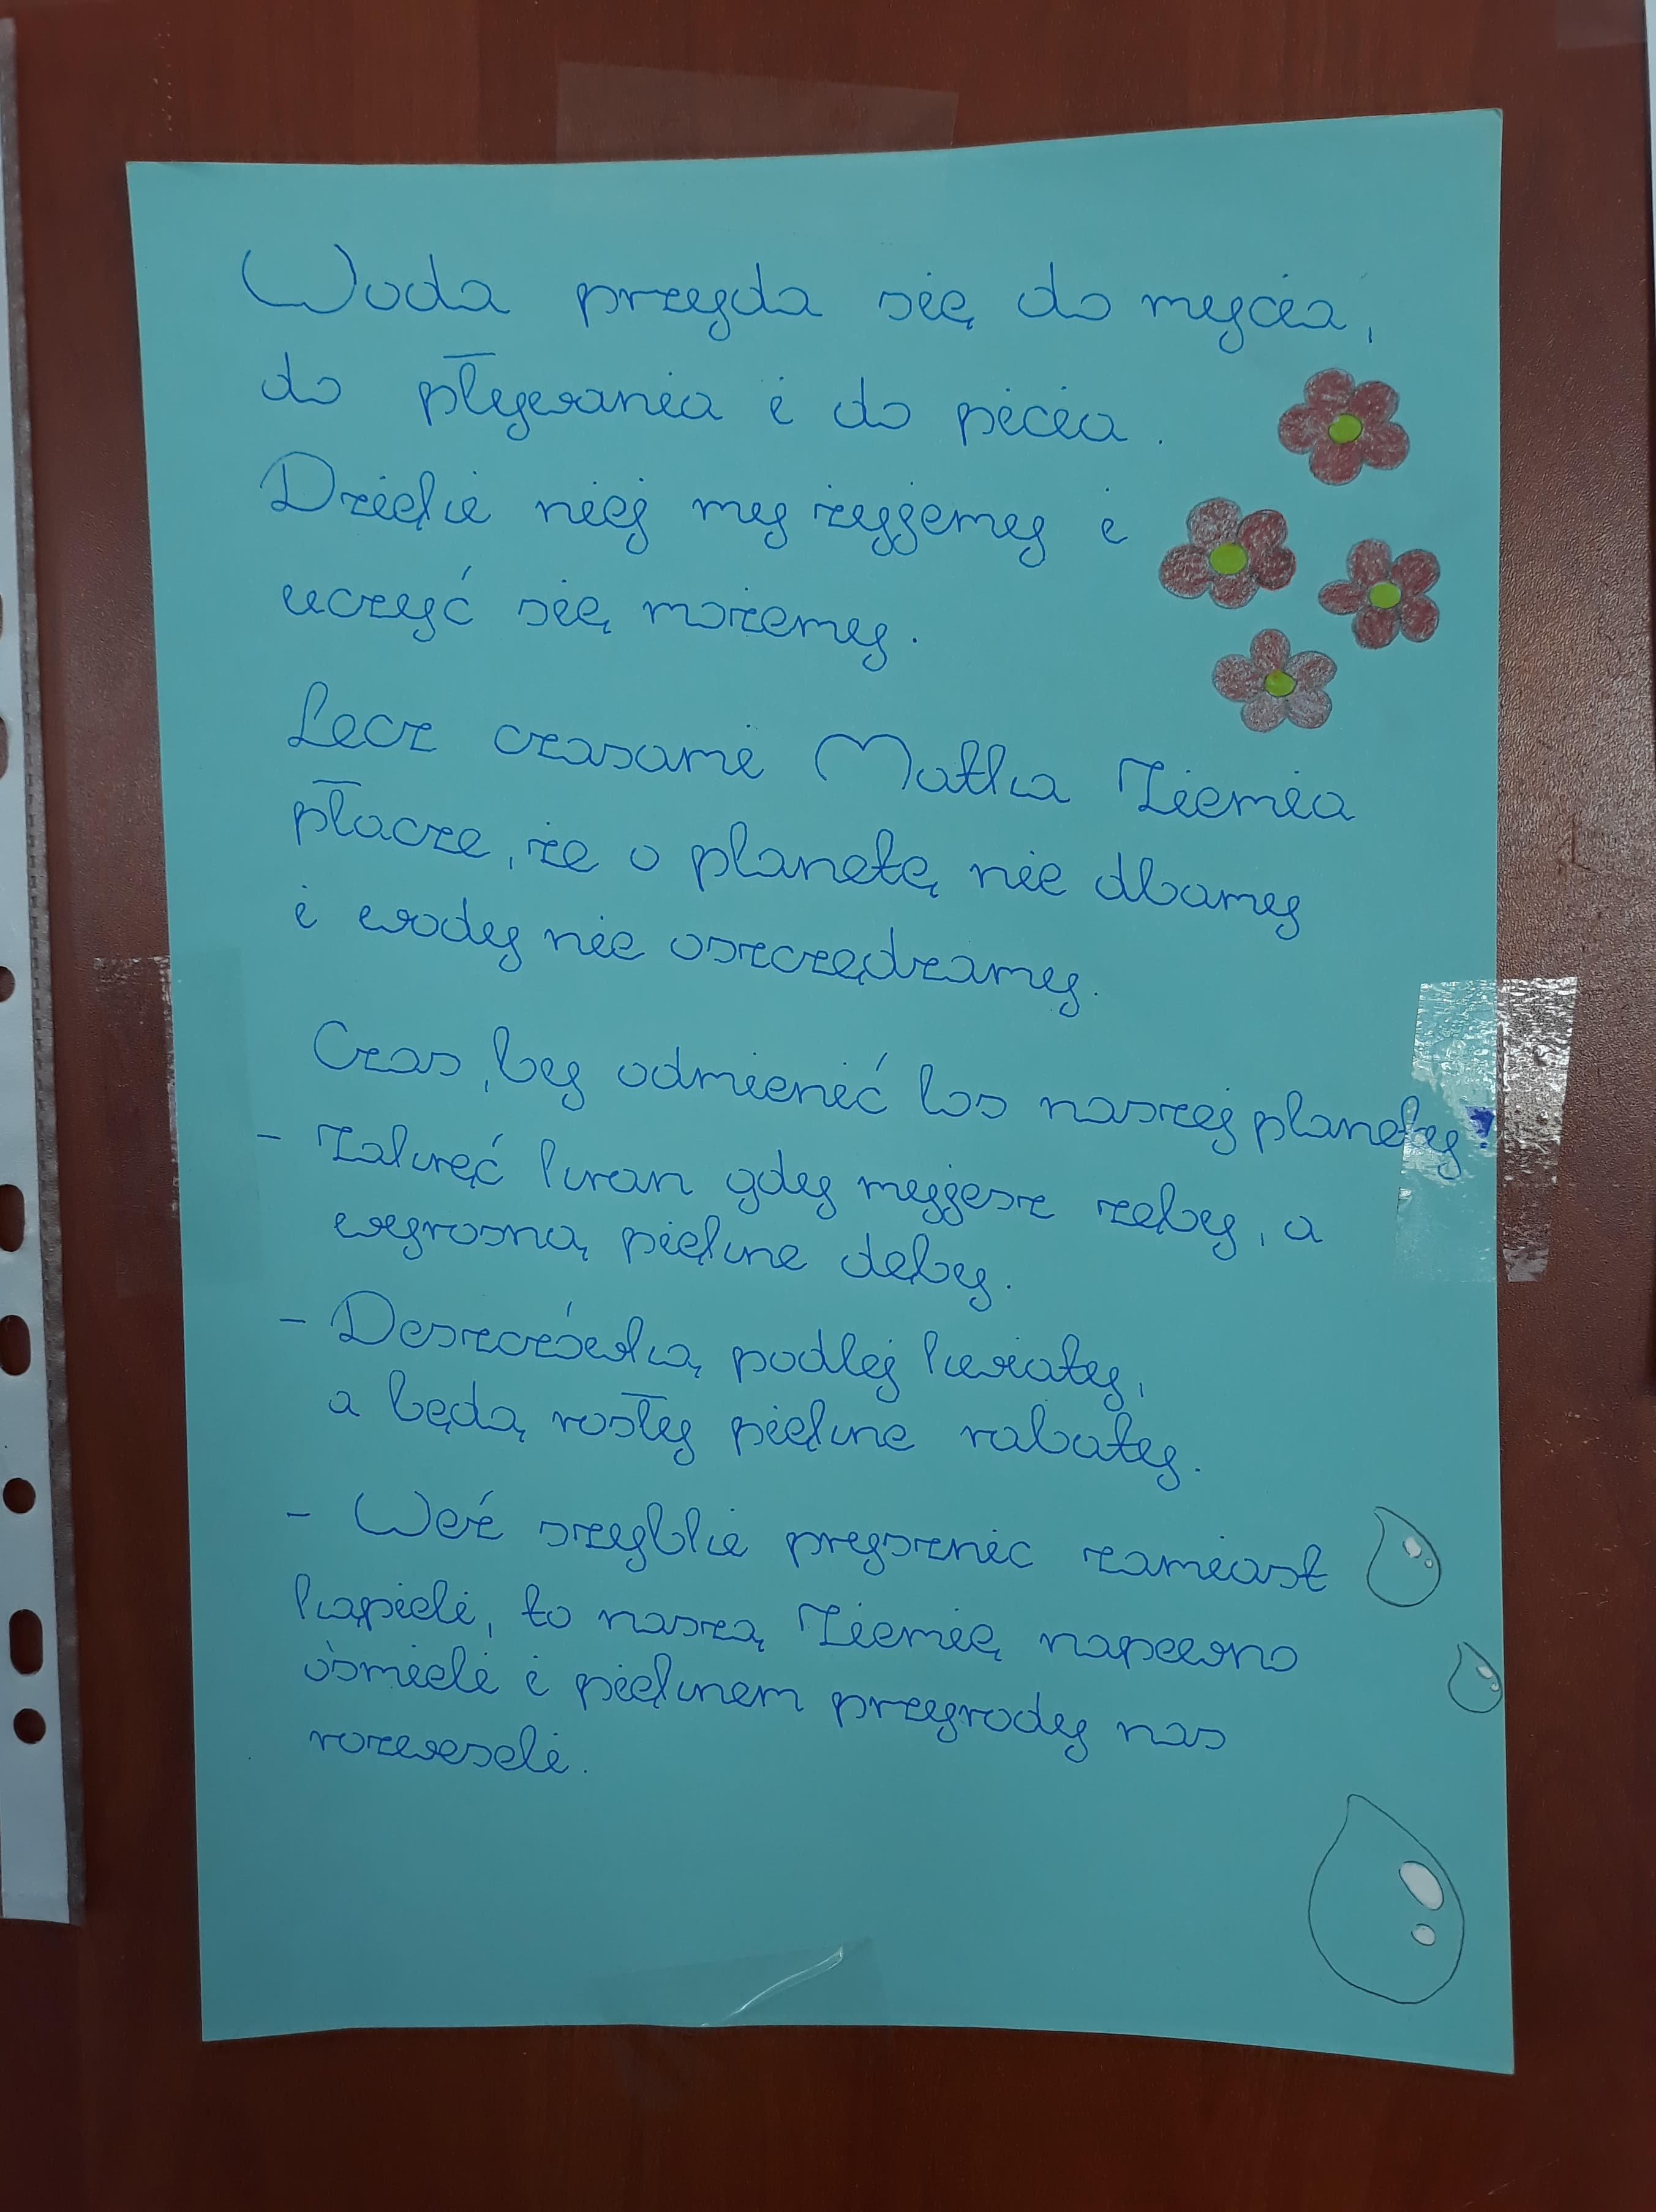 Woda przyda się do mycia,
do pływania i do picia.
Dzięki niej my żyjemy i
uczyć się możemy.
Lecz czasami Matka Ziemia
płacze, że o planetę nie dbamy
i wody nie oszczędzamy.
Czas, by odmienić los naszej planety!
- Zakręć kran gdy myjesz zęby, a
wyrosną piękne dęby.
- Deszczówką podlej kwiaty,
a będą rosły piękne rabaty.
- Weź szybki prysznic zamiast
kąpieli, to naszą Ziemię napewno
ośmieli i pięknem przyrody nas
rozweseli.